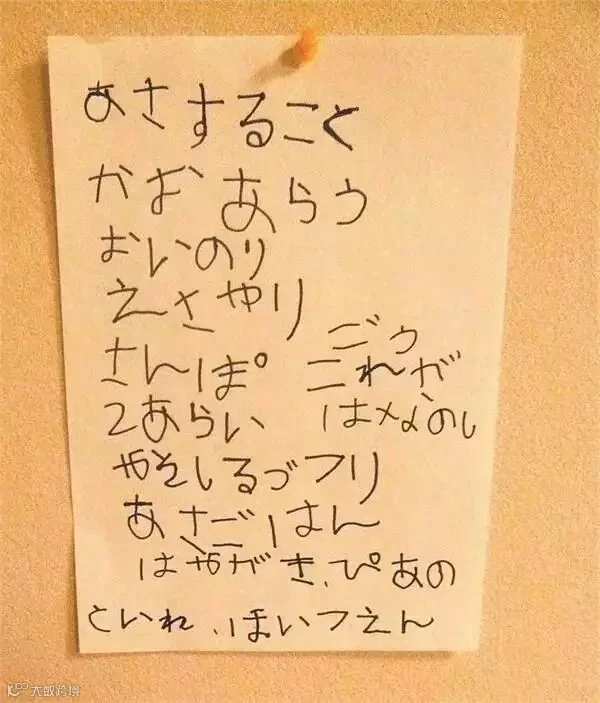 あさすること
かおあらう
おいのり
えさやり
ごう
さんぽ これが
2あらい はなのし
みそしるづくり
あさごはん
はみがき、ぴあの
といれ、ほいくえん
大数跨境